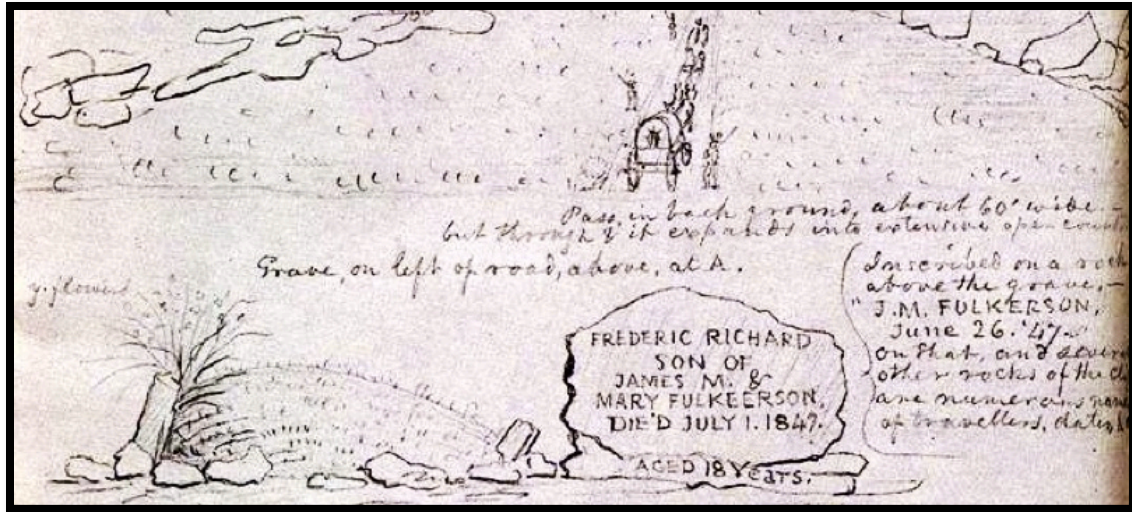 Pass, in back ground, about 60' wide.—
but through it expands into extensive open
Grave, on left of road, above, at A.
y. flowers
FREDERIC RICHARD
SON OF
JAMES M. &
MARY FULKEERSON,
DIE'D JULY 1. 1847.
AGED 18 Years.
Inscribed on a rock
above the grave,—
"J.M. FULKERSON,
June 26. '47.
on that, and several
other rocks of the
are numerous names
of travellers, dates,